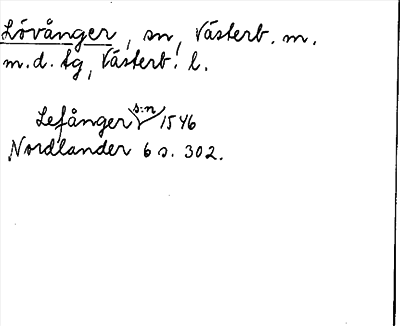 Lövånger, sn, Västerb. m.
m.d. tg, Västerb. l.
Lefånger s:n 1546
Nordlander 6 s. 302.